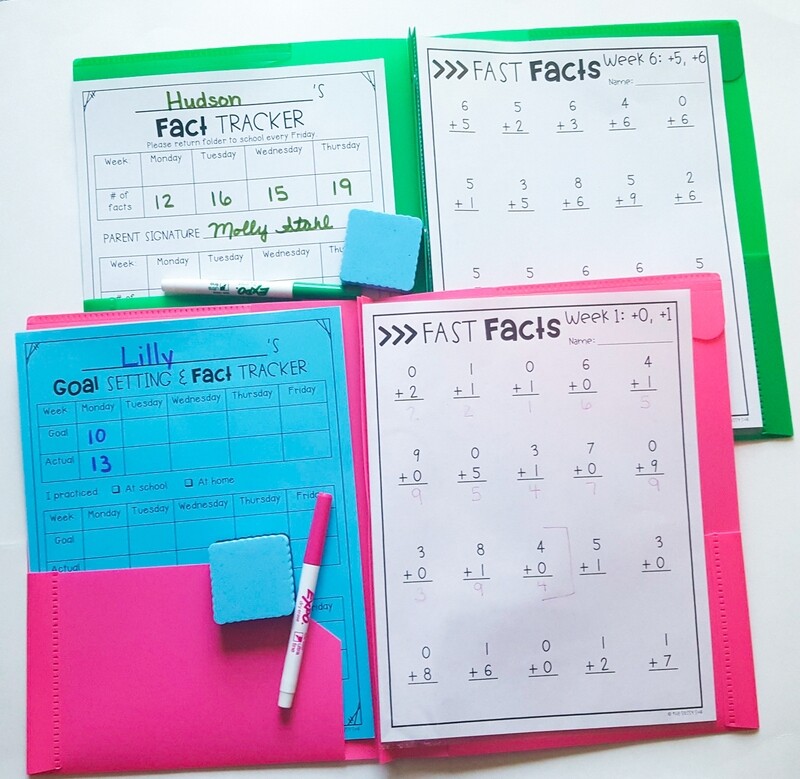 Hudson 'S
Fact TRACKER
Please return folder to school every Friday.
Week Monday Tuesday Wednesday Thursday
# of facts 12 16 15 19
PARENT SIGNATURE Molly Stahl
Week Monday Tuesday Wednesday
EXPO
>>> FAST Facts Week 6: +5, +6
Name:
6 5 6 4 0
+5 +2 +3 +6 +6
5 3 8 5 2
+1 +5 +6 +9 +6
5 5 6 6 5
Lilly 'S
Goal SETTING & Fact TRACKER
Week Monday Tuesday Wednesday Thursday Friday
Goal 10
Actual 13
I practiced: ❑ At school ❑ At home
Week Monday Tuesday Wednesday Thursday
Goal
Actual
EXPO
>>> FAST Facts Week 1: +0, +1
Name:
0 1 0 6 4
+2 +1 +1 +0 +1
2 2 1 6 5
9 0 3 7 0
+0 +5 +1 +0 +9
9 5 4 7 9
3 8 4 5 3
+0 +1 +0 +1 +0
3 9 4
0 1 0 1 1
+8 +6 +0 +2 +7